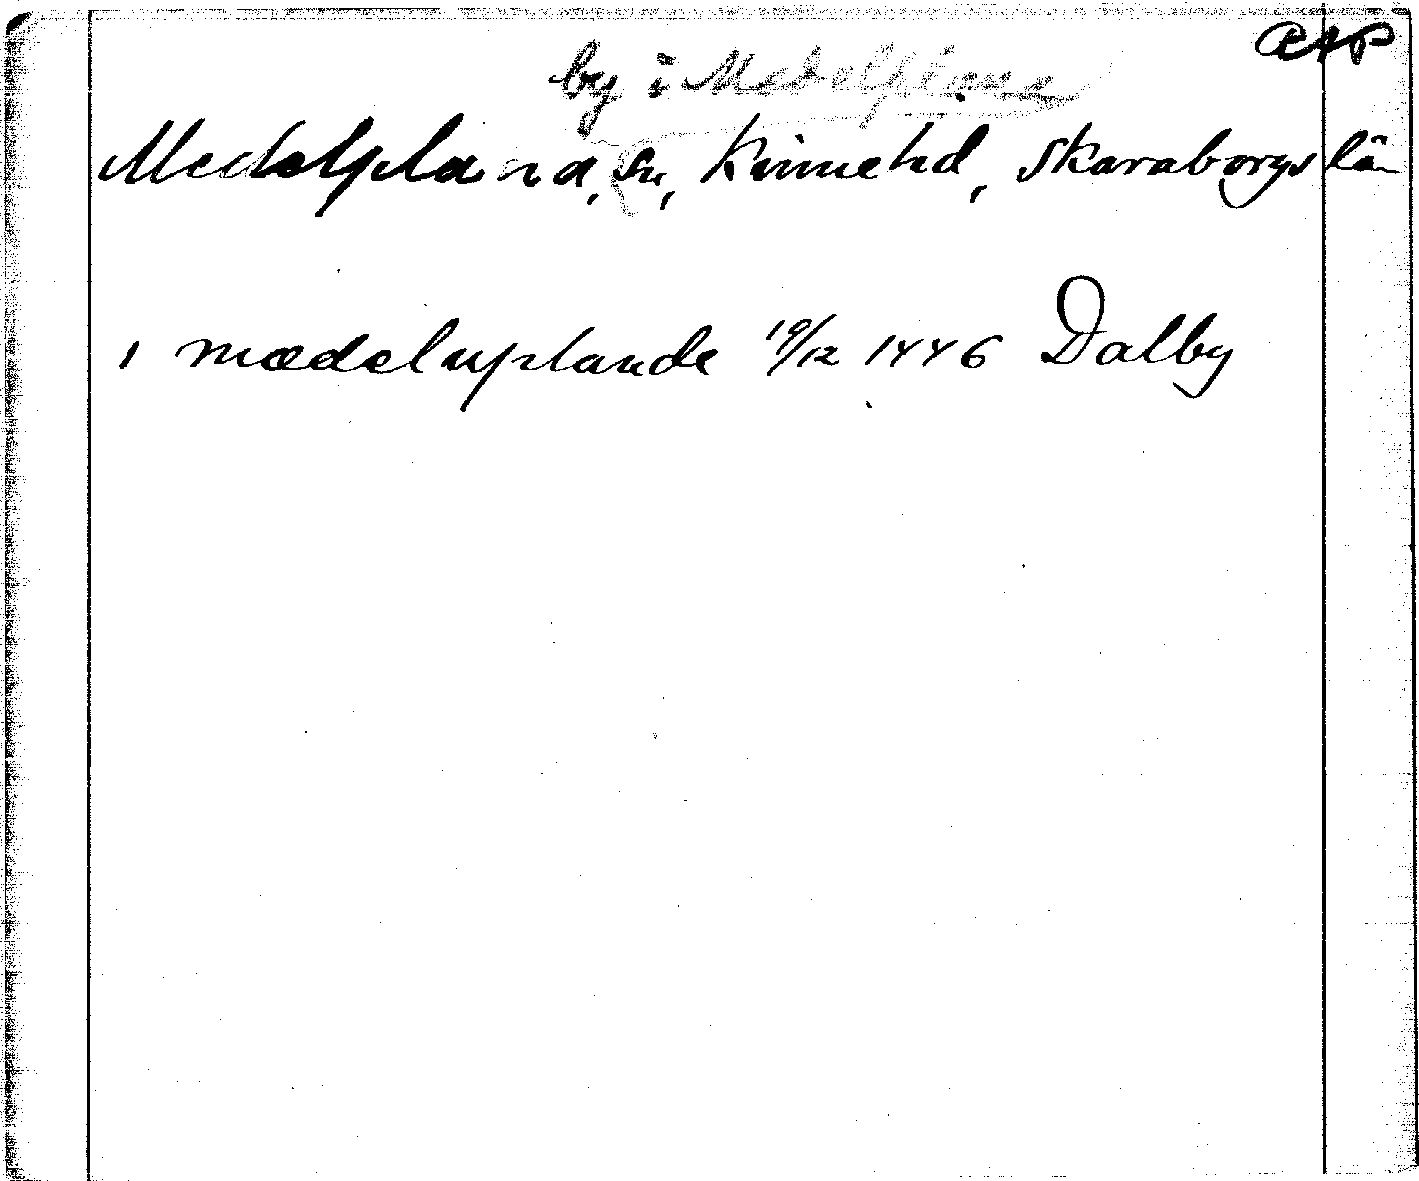 RAP
by i Medelplana
Medelplana, sn, Kinnehd, Skaraborgs län
i mædeluplande 19/12 1446 Dalby